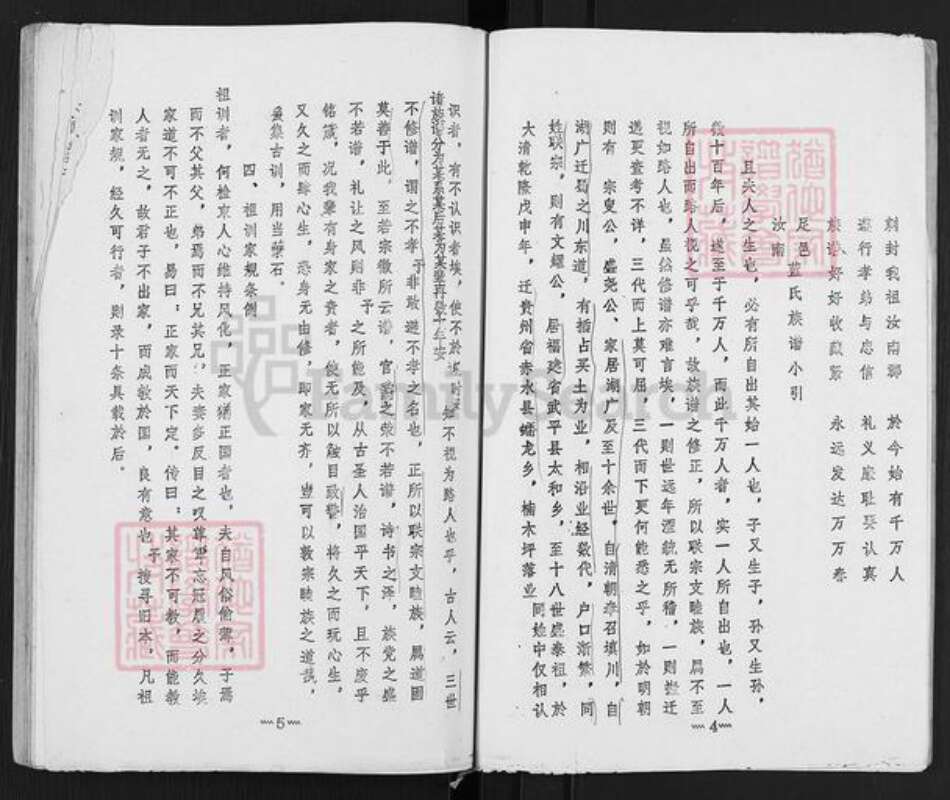 敕封我祖汝南郡 於今始有千万人
遵行孝弟与忠信 礼义廉耻要认真
族谱好好收藏紧 永远发达万万春
足邑
汝南 蓝氏族谱小引
且夫人之生也，必有所自出其始一人也，子又生子，孙又生孙，
数十百年后，遂至于千万人，而此千万人者，实一人所自出也，一人
所自出而路人视之可乎哉，故族谱之修正，所以联宗支睦族，属不至
视如路人也，虽然修谱亦难言埃，一则世远年湮统无所稽，一则搬迁
遥更查考不详，三代而上莫可屈，三代而下更何能悉之乎，如於明朝
则有 宗叟公，盛尧公、家居湖广及至十余世，自清朝奉召填川，自
湖广迁蜀之川东道，有插占买土为业，相沿业经数代，户口渐繁，同
姓联宗，则有文耀公，居福建省武平县太和乡，至十八世盛泰祖，於
大清乾隆戊申年，迁贵州省赤水县蟠龙乡，楠木坪落业 同姓中仅相认
4
识者，有不认识者埃，使不於 短不视为路人也乎，古人云，三世
不修谱，谓之不孝 予非敢避不孝之名也，正所以联宗支睦族，属道固
莫善于此，至若宗徽所云谱，官爵之荣不若谱，诗书之泽，族党之盛
不若谱，礼让之风则非 予之所能及，从古圣人治国乎天下，且不废乎
铭箴，况我辈有身家之责者，使无所以触目致警，将久之而玩心生，
又久之而肆心生，恐身无由修，即家无齐，岂可以教宗睦族之道哉，
爰集古训，用当药石。
四、祖训家规条例
祖训者，何检束人心维持风化，正家犹正国者也，夫自风俗偷薄，子焉
而不父其父，弟焉而不兄其兄，夫妻多反目之叹尊卑忘冠履之分久埃
家道不可不正也，易曰：正家而天下定。传曰：其家不可教，而能教
人者无之，故君子不出家，而成教於国，良有意也 予搜寻旧本，凡祖
训家规，经久可行者，则录十条具载於后。
5
FamilySearch